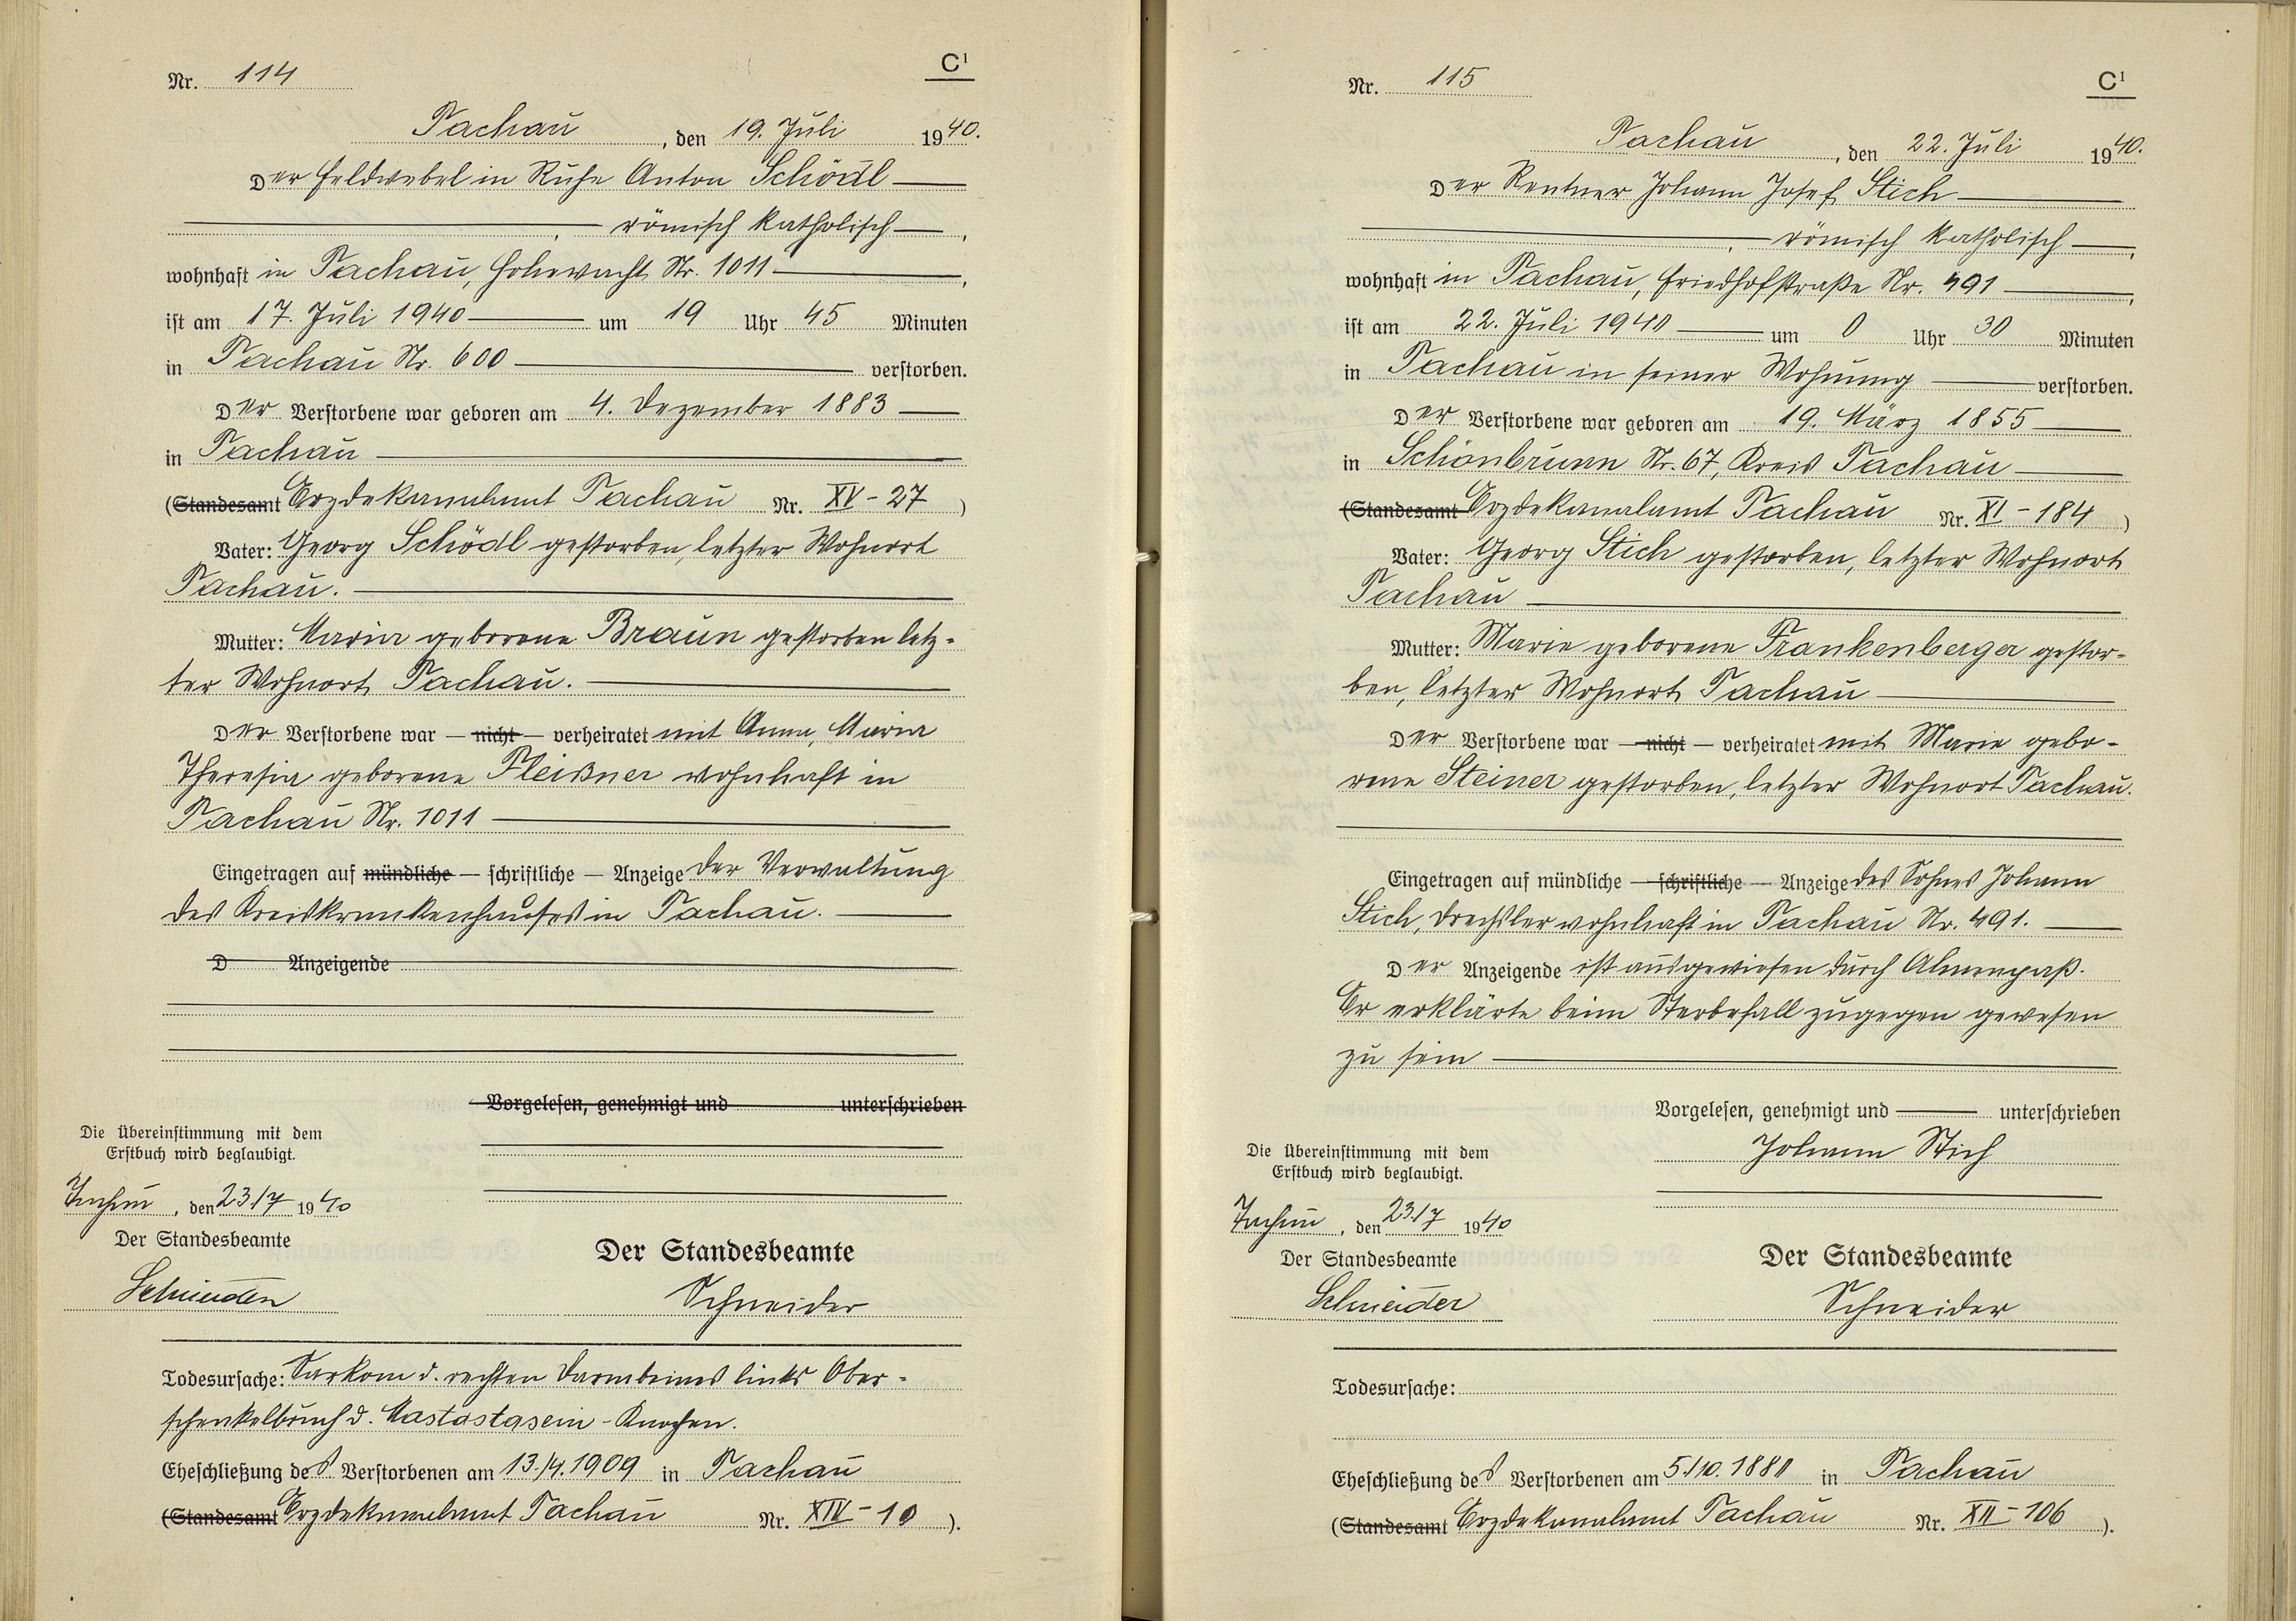 Nr. 114
C¹
Tachau, den 19. Juli 1940.
Der Feldwebel in Ruhe Anton Schödl
römisch katholisch,
wohnhaft in Tachau, Hohewacht Nr. 1011,
ist am 17. Juli 1940 um 19 Uhr 45 Minuten
in Tachau Nr. 600 verstorben.
Der Verstorbene war geboren am 4. Dezember 1883
in Tachau
(Standesamt Erzdekanalamt Tachau Nr. XV - 27)
Vater: Georg Schödl gestorben, letzter Wohnort
Tachau.
Mutter: Maria geborene Braun gestorben letz-
ter Wohnort Tachau.
Der Verstorbene war — nicht — verheiratet mit Anna, Maria
Theresia geborene Fleißner wohnhaft in
Tachau Nr. 1011
Eingetragen auf mündliche — schriftliche — Anzeige der Verwaltung
des Kreiskrankenhauses in Tachau.
D Anzeigende
Vorgelesen, genehmigt und unterschrieben
Die Übereinstimmung mit dem
Erstbuch wird beglaubigt.
Tachau, den 23./7 1940
Der Standesbeamte
Schneider
Der Standesbeamte
Schneider
Todesursache: Sarkom d. rechten Darmbeines links Ober-
schenkelbruch d. Mastastasein - Knochen.
Eheschließung des Verstorbenen am 13./4. 1909 in Tachau
(Standesamt Erzdekanalamt Tachau Nr. XIV - 10).
Nr. 115
C¹
Tachau, den 22. Juli 1940.
Der Rentner Johann Josef Stich
römisch katholisch,
wohnhaft in Tachau, Friedhofstraße Nr. 491,
ist am 22. Juli 1940 um 0 Uhr 30 Minuten
in Tachau in seiner Wohnung verstorben.
Der Verstorbene war geboren am 19. März 1855
in Schönbrunn Nr. 67, Kreis Tachau
(Standesamt Erzdekanalamt Tachau Nr. XI - 184)
Vater: Georg Stich gestorben, letzter Wohnort
Tachau
Mutter: Marie geborene Frankenberger gestor-
ben, letzter Wohnort Tachau
Der Verstorbene war — nicht — verheiratet mit Marie gebo-
rene Steiner gestorben, letzter Wohnort Tachau.
Eingetragen auf mündliche — schriftliche — Anzeige des Sohnes Johann
Stich, Drechsler wohnhaft in Tachau Nr. 491.
Der Anzeigende ist ausgewiesen durch Ahnenpaß.
Er erklärte beim Sterbefall zugegen gewesen
zu sein
Vorgelesen, genehmigt und unterschrieben
Johann Stich
Die Übereinstimmung mit dem
Erstbuch wird beglaubigt.
Tachau, den 23./7 1940
Der Standesbeamte
Schneider
Der Standesbeamte
Schneider
Todesursache:
Eheschließung des Verstorbenen am 5./10. 1880 in Tachau
(Standesamt Erzdekanalamt Tachau Nr. XII - 106).